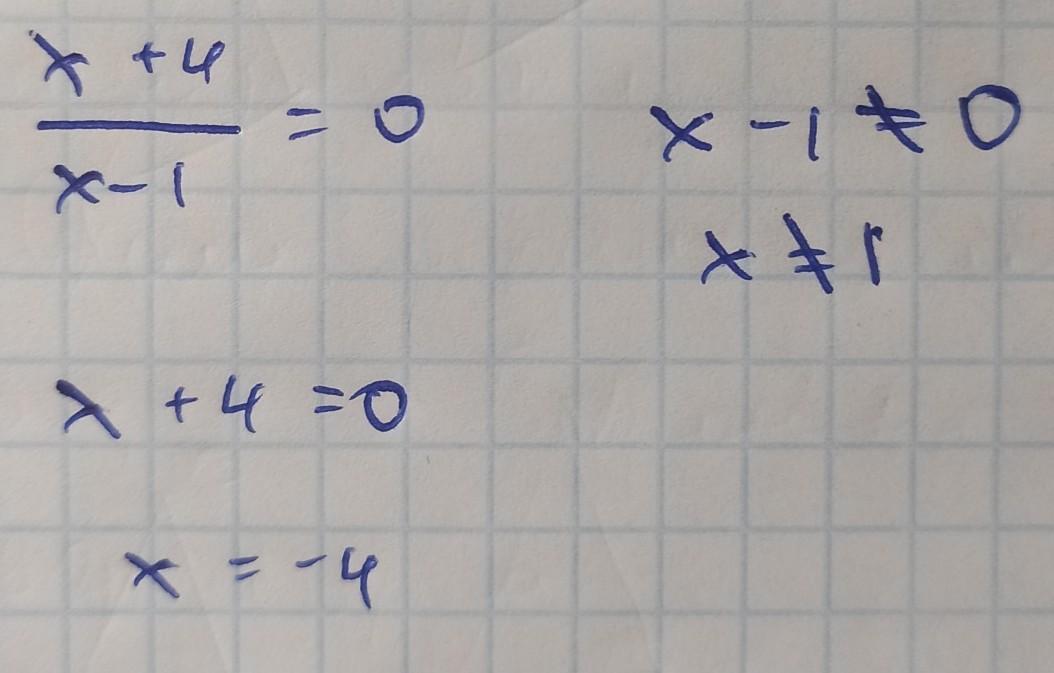 x + 4
x - 1
= 0
x - 1 ≠ 0
x ≠ 1
x + 4 = 0
x = -4